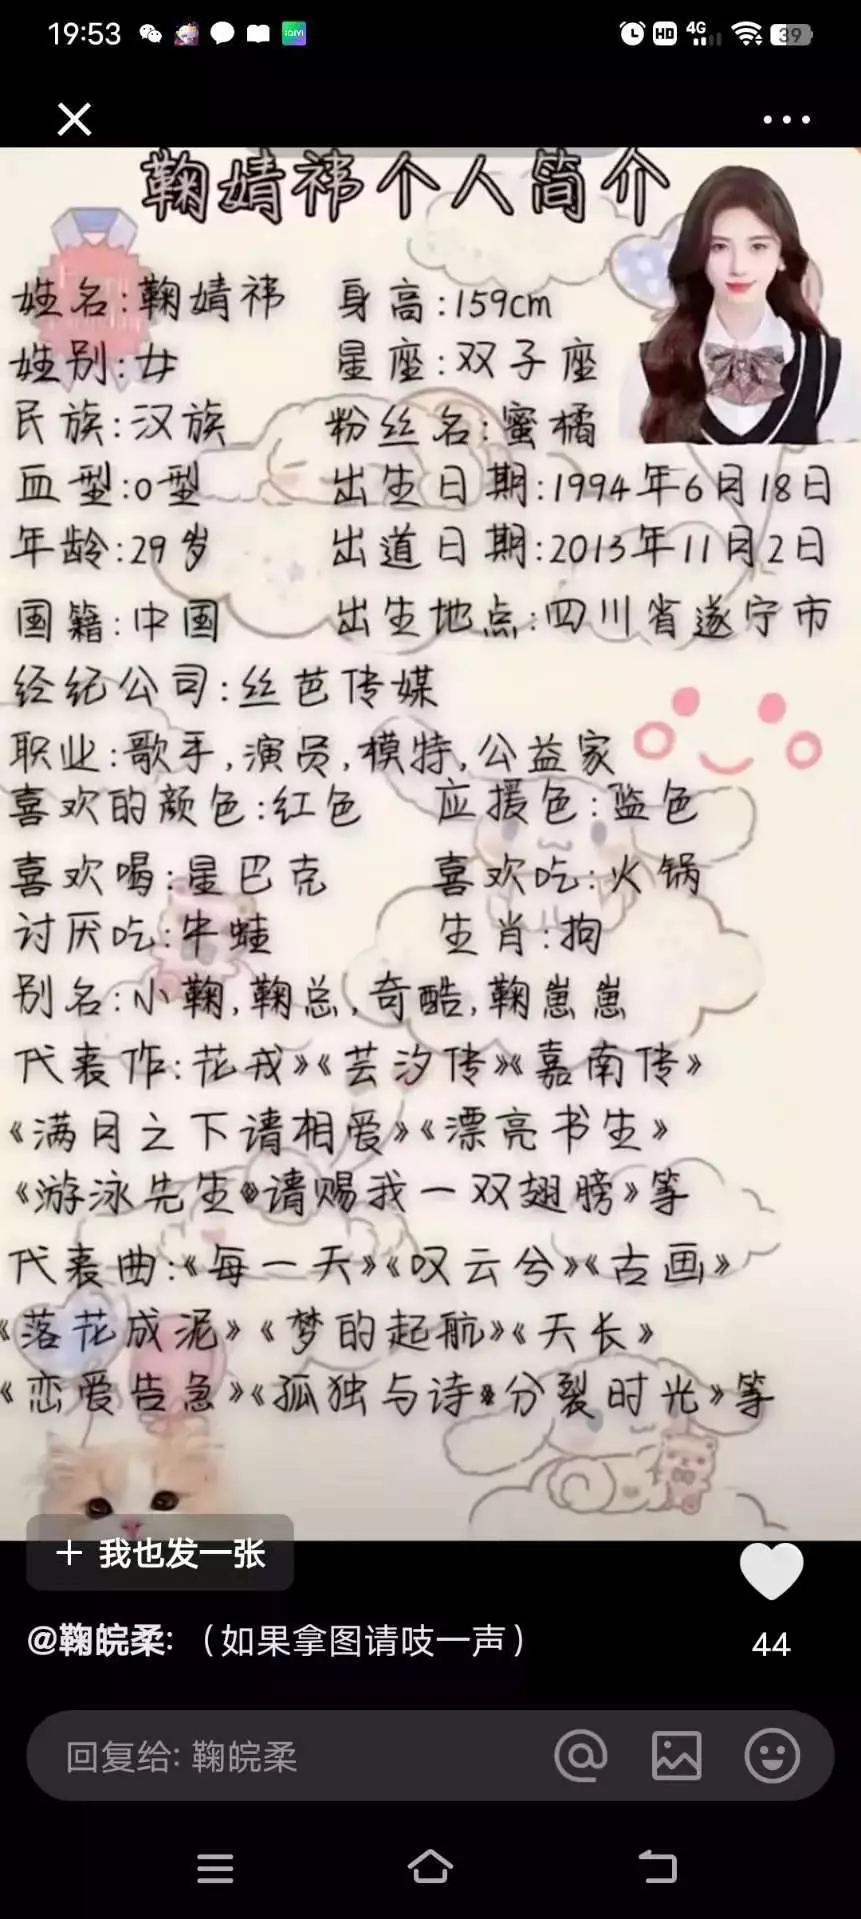 19:53
HD 4G 39
鞠婧祎个人简介
姓名:鞠婧祎 身高:159cm
姓别:女 星座:双子座
民族:汉族 粉丝名:蜜橘
血型:o型 出生日期:1994年6月18日
年龄:29岁 出道日期:2013年11月2日
国籍:中国 出生地点:四川省遂宁市
经纪公司:丝芭传媒
职业:歌手,演员,模特,公益家
喜欢的颜色:红色 应援色:蓝色
喜欢喝:星巴克 喜欢吃:火锅
讨厌吃:牛蛙 生肖:狗
别名:小鞠,鞠总,奇酷,鞠崽崽
代表作:花戎》《芸汐传》《嘉南传》
《满月之下请相爱》《漂亮书生》
《游泳先生》《请赐我一双翅膀》等
代表曲:《每一天》《叹云兮》《古画》
《落花成泥》《梦的起航》《天长》
《恋爱告急》《孤独与诗》《分裂时光》等
+ 我也发一张
@鞠皖柔:（如果拿图请吱一声）
44
回复给: 鞠皖柔